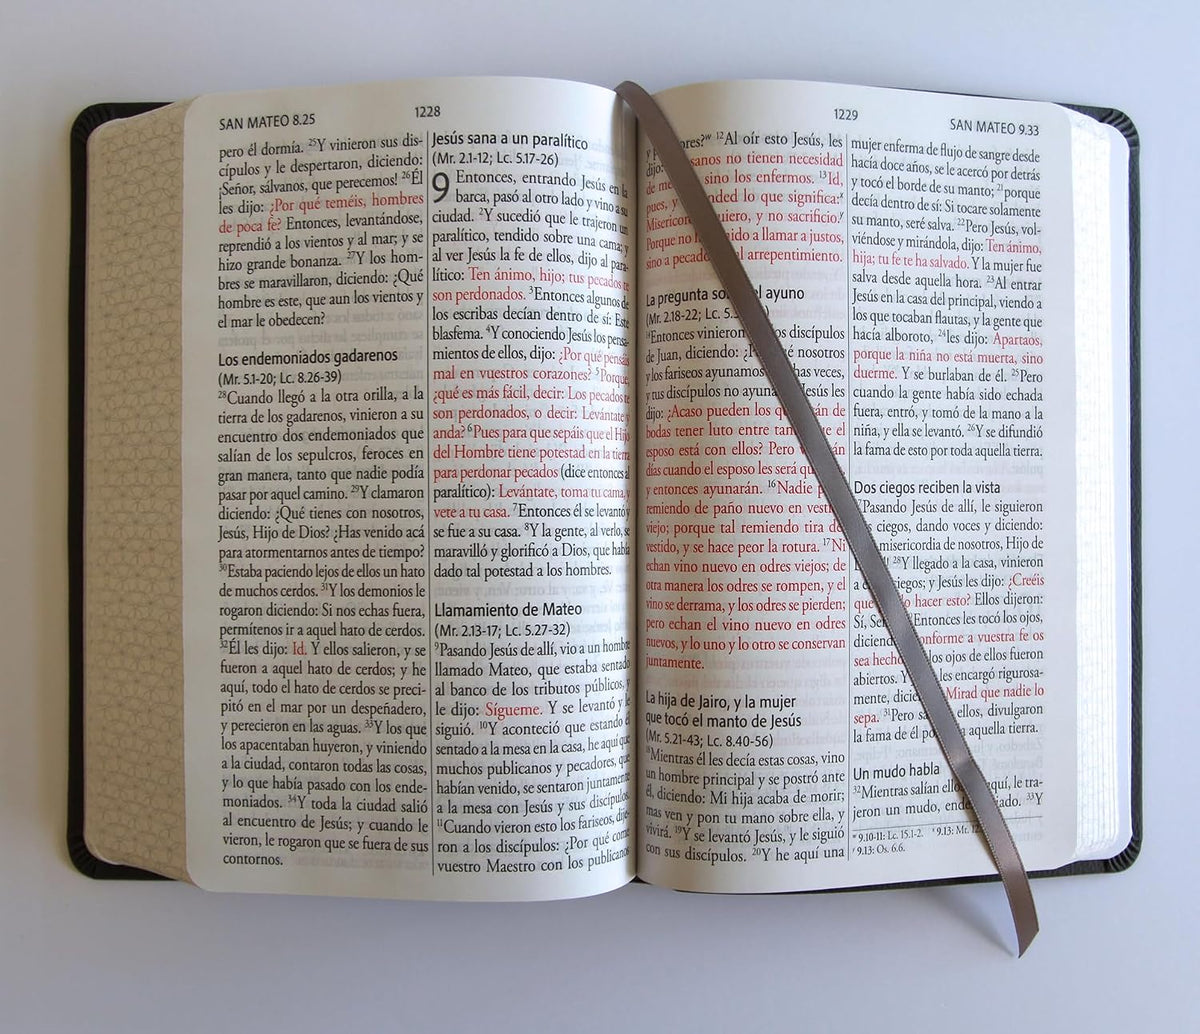 SAN MATEO 8.25
1228
pero él dormía. 25Y vinieron sus dis-
cípulos y le despertaron, diciendo:
¡Señor, sálvanos, que perecemos! 26Él
les dijo: ¿Por qué teméis, hombres
de poca fe? Entonces, levantándose,
reprendió a los vientos y al mar; y se
hizo grande bonanza. 27Y los hom-
bres se maravillaron, diciendo: ¿Qué
hombre es este, que aun los vientos y
el mar le obedecen?
Los endemoniados gadarenos
(Mr. 5.1-20; Lc. 8.26-39)
28Cuando llegó a la otra orilla, a la
tierra de los gadarenos, vinieron a su
encuentro dos endemoniados que
salían de los sepulcros, feroces en
gran manera, tanto que nadie podía
pasar por aquel camino. 29Y clamaron
diciendo: ¿Qué tienes con nosotros,
Jesús, Hijo de Dios? ¿Has venido acá
para atormentarnos antes de tiempo?
30Estaba paciendo lejos de ellos un hato
de muchos cerdos. 31Y los demonios le
rogaron diciendo: Si nos echas fuera,
permítenos ir a aquel hato de cerdos.
32Él les dijo: Id. Y ellos salieron, y se
fueron a aquel hato de cerdos; y he
aquí, todo el hato de cerdos se preci-
pitó en el mar por un despeñadero,
y perecieron en las aguas. 33Y los que
los apacentaban huyeron, y viniendo
a la ciudad, contaron todas las cosas,
y lo que había pasado con los ende-
moniados. 34Y toda la ciudad salió
al encuentro de Jesús; y cuando le
vieron, le rogaron que se fuera de sus
contornos.
Jesús sana a un paralítico
(Mr. 2.1-12; Lc. 5.17-26)
9 Entonces, entrando Jesús en la
barca, pasó al otro lado y vino a su
ciudad. 2Y sucedió que le trajeron un
paralítico, tendido sobre una cama; y
al ver Jesús la fe de ellos, dijo al para-
lítico: Ten ánimo, hijo; tus pecados te
son perdonados. 3Entonces algunos de
los escribas decían dentro de sí: Este
blasfema. 4Y conociendo Jesús los pensa-
mientos de ellos, dijo: ¿Por qué pensáis
mal en vuestros corazones? 5Porque,
¿qué es más fácil, decir: Los pecados te
son perdonados, o decir: Levántate y
anda? 6Pues para que sepáis que el Hijo
del Hombre tiene potestad en la tierra
para perdonar pecados (dice entonces al
paralítico): Levántate, toma tu cama, y
vete a tu casa. 7Entonces él se levantó y
se fue a su casa. 8Y la gente, al verlo, se
maravilló y glorificó a Dios, que había
dado tal potestad a los hombres.
Llamamiento de Mateo
(Mr. 2.13-17; Lc. 5.27-32)
9Pasando Jesús de allí, vio a un hombre
llamado Mateo, que estaba sentado
al banco de los tributos públicos, y
le dijo: Sígueme. Y se levantó y le
siguió. 10Y aconteció que estando él
sentado a la mesa en la casa, he aquí que
muchos publicanos y pecadores, que
habían venido, se sentaron juntamente
a la mesa con Jesús y sus discípulos.
11Cuando vieron esto los fariseos, dije-
ron a los discípulos: ¿Por qué come
vuestro Maestro con los publicanos
1229
SAN MATEO 9.33
y ores?w 12Al oír esto Jesús, les
dijo: sanos no tienen necesidad
de sino los enfermos. 13Id,
pues, y nded lo que significa:x
Misericor uiero, y no sacrificio.y
Porque no ido a llamar a justos,
sino a pecado al arrepentimiento.
La pregunta so el ayuno
(Mr. 2.18-22; Lc. 5. )
14Entonces vinieron los discípulos
de Juan, diciendo: ¿P é nosotros
y los fariseos ayunamos has veces,
y tus discípulos no ayuna Jesús les
dijo: ¿Acaso pueden los qu án de
bodas tener luto entre tan e el
esposo está con ellos? Pero án
días cuando el esposo les será qu
y entonces ayunarán. 16Nadie p
remiendo de paño nuevo en vesti
viejo; porque tal remiendo tira de
vestido, y se hace peor la rotura. 17Ni
echan vino nuevo en odres viejos; de
otra manera los odres se rompen, y el
vino se derrama, y los odres se pierden;
pero echan el vino nuevo en odres
nuevos, y lo uno y lo otro se conservan
juntamente.
La hija de Jairo, y la mujer
que tocó el manto de Jesús
(Mr. 5.21-43; Lc. 8.40-56)
18Mientras él les decía estas cosas, vino
un hombre principal y se postró ante
él, diciendo: Mi hija acaba de morir;
mas ven y pon tu mano sobre ella, y
vivirá. 19Y se levantó Jesús, y le siguió
con sus discípulos. 20Y he aquí una
mujer enferma de flujo de sangre desde
hacía doce años, se le acercó por detrás
y tocó el borde de su manto; 21porque
decía dentro de sí: Si tocare solamente
su manto, seré salva. 22Pero Jesús, vol-
viéndose y mirándola, dijo: Ten ánimo,
hija; tu fe te ha salvado. Y la mujer fue
salva desde aquella hora. 23Al entrar
Jesús en la casa del principal, viendo a
los que tocaban flautas, y la gente que
hacía alboroto, 24les dijo: Apartaos,
porque la niña no está muerta, sino
duerme. Y se burlaban de él. 25Pero
cuando la gente había sido echada
fuera, entró, y tomó de la mano a la
niña, y ella se levantó. 26Y se difundió
la fama de esto por toda aquella tierra.
Dos ciegos reciben la vista
Pasando Jesús de allí, le siguieron
s ciegos, dando voces y diciendo:
misericordia de nosotros, Hijo de
28Y llegado a la casa, vinieron
a ciegos; y Jesús les dijo: ¿Creéis
que o hacer esto? Ellos dijeron:
Sí, Se Entonces les tocó los ojos,
diciend onforme a vuestra fe os
sea hecho los ojos de ellos fueron
abiertos. Y les encargó rigurosa-
mente, dicie Mirad que nadie lo
sepa. 31Pero sa ellos, divulgaron
la fama de él po a aquella tierra.
Un mudo habla
32Mientras salían ello quí, le tra-
jeron un mudo, ende iado. 33Y
w 9.10-11: Lc. 15.1-2. x 9.13: Mt. 12
y 9.13: Os. 6.6.